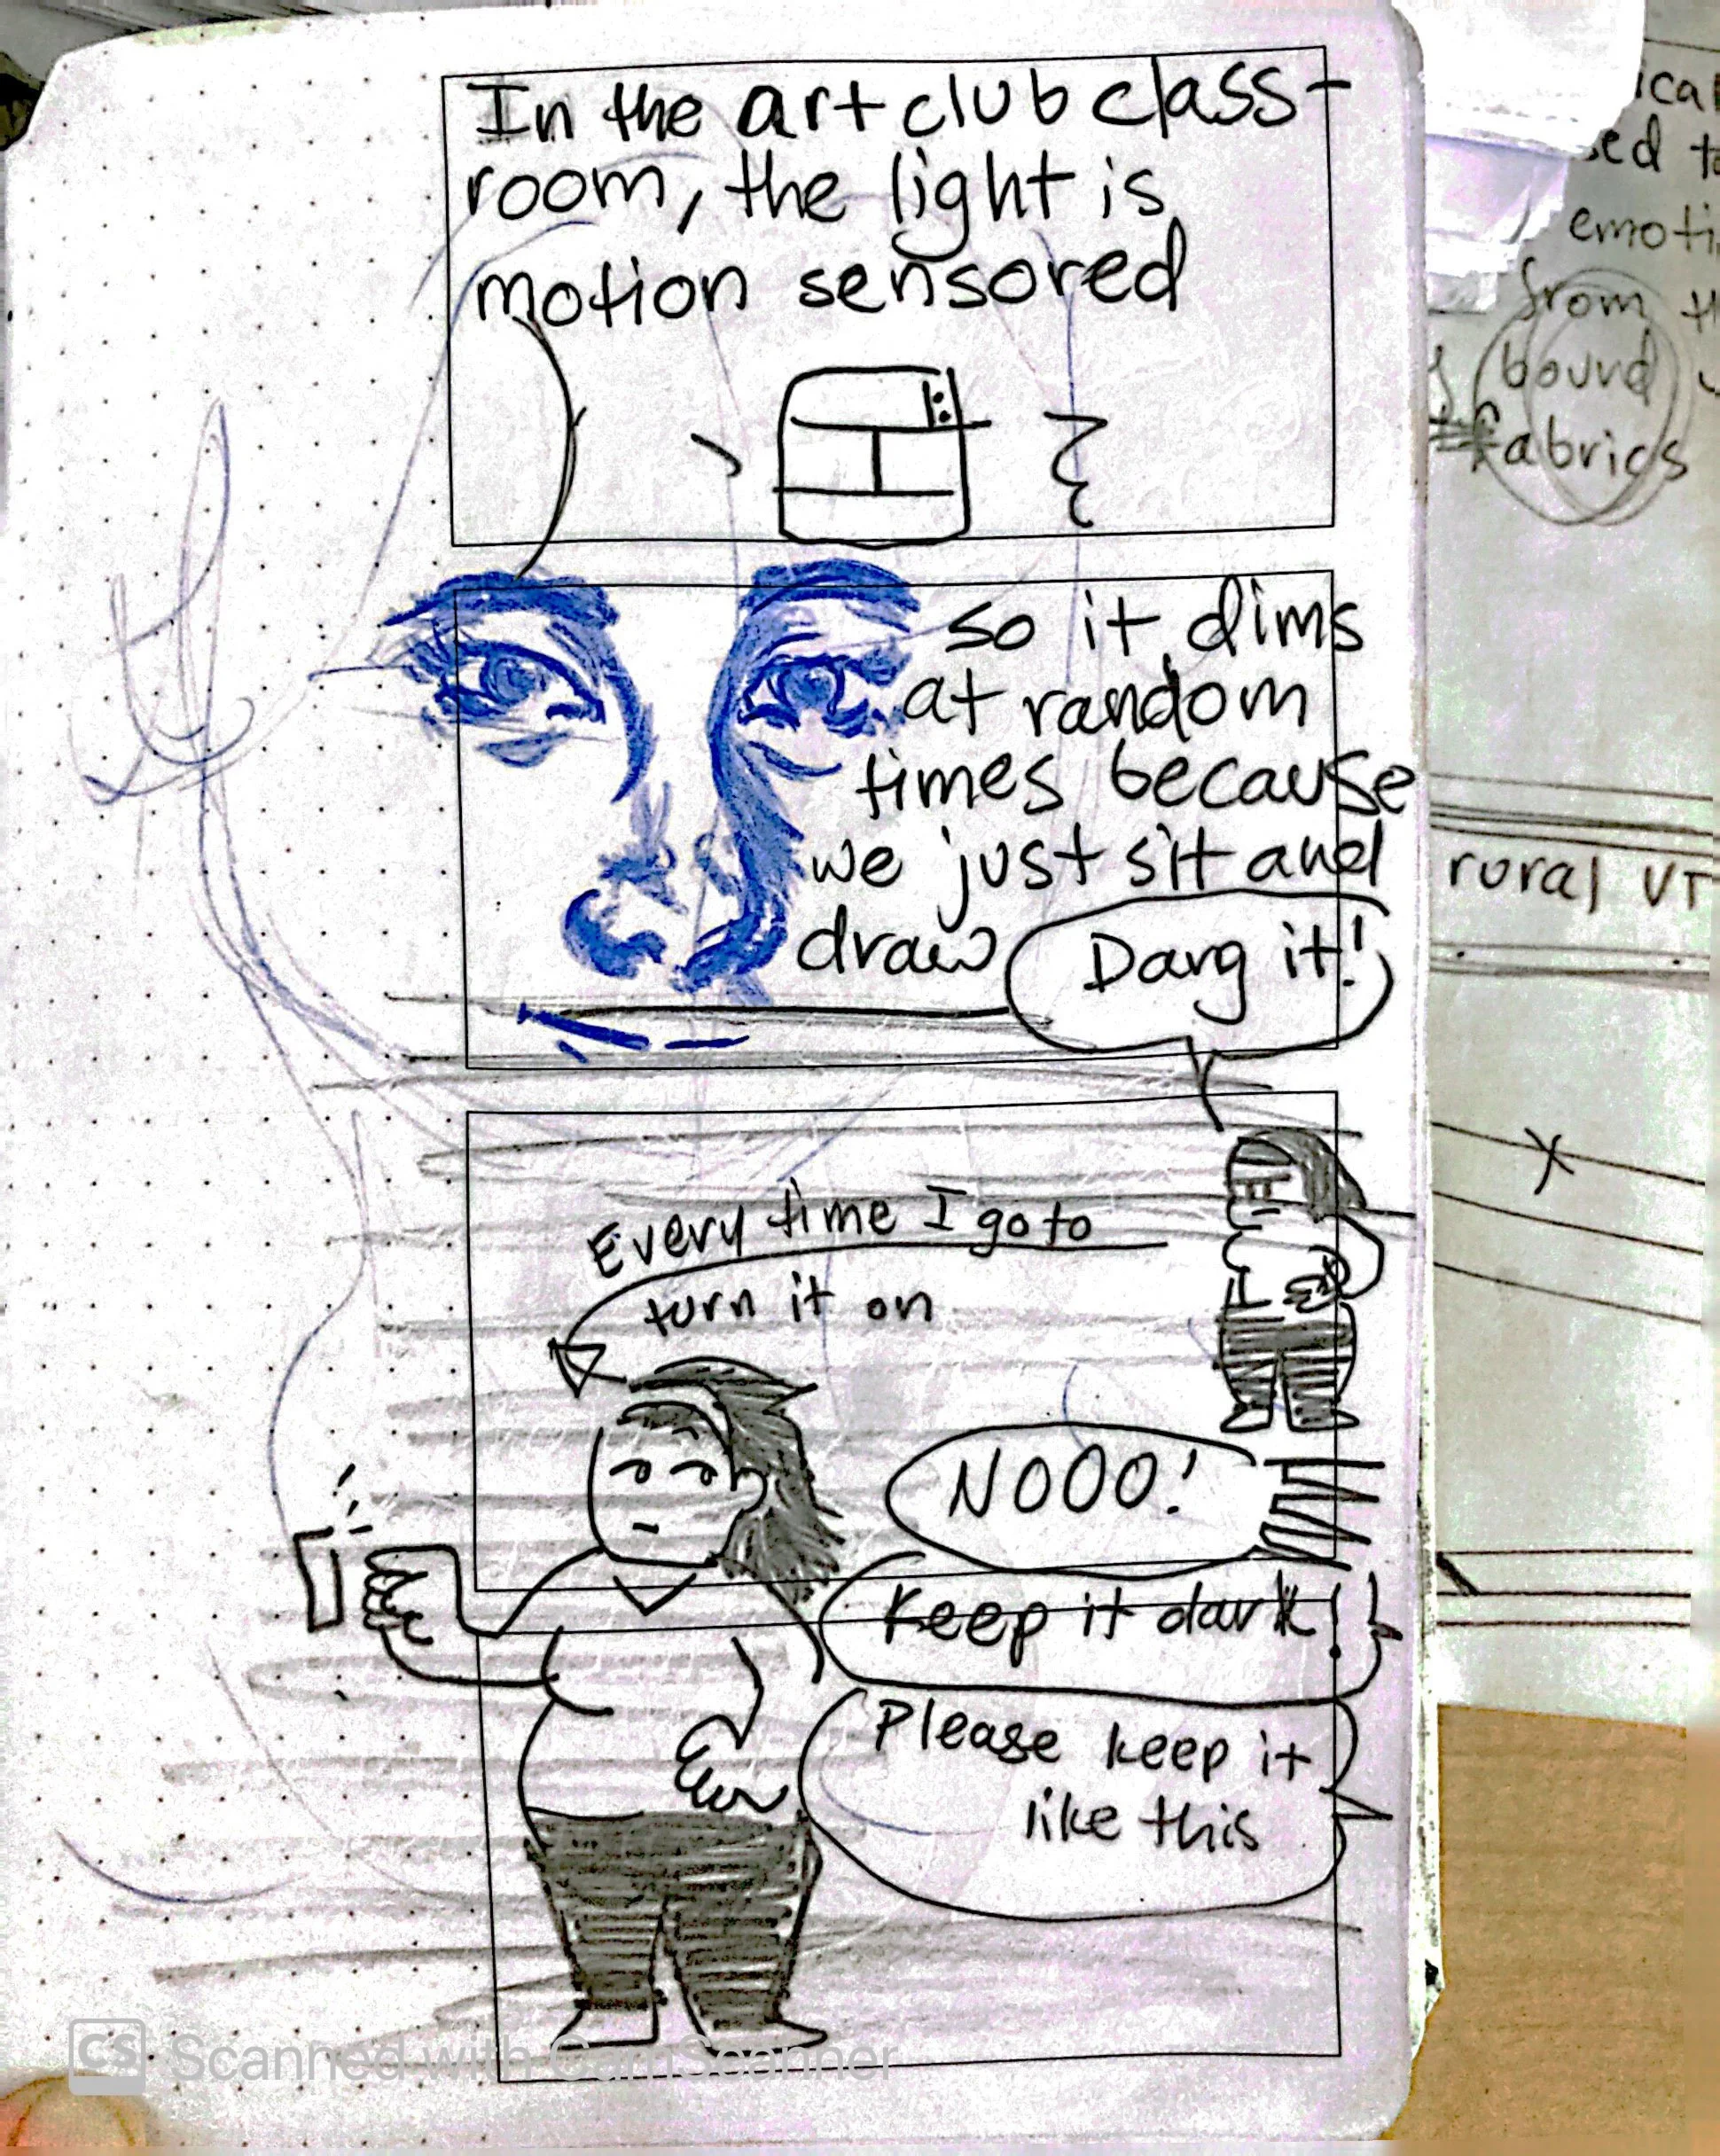 In the art club class-
room, the light is
motion sensored
so it dims
at random
times because
we just sit and
draw
Dang it!
Every time I go to
turn it on
NOOO!
Keep it dark!
Please keep it
like this
emoti
from
bound
fabrics
rural VT
X
CS Scanned with CamScanner